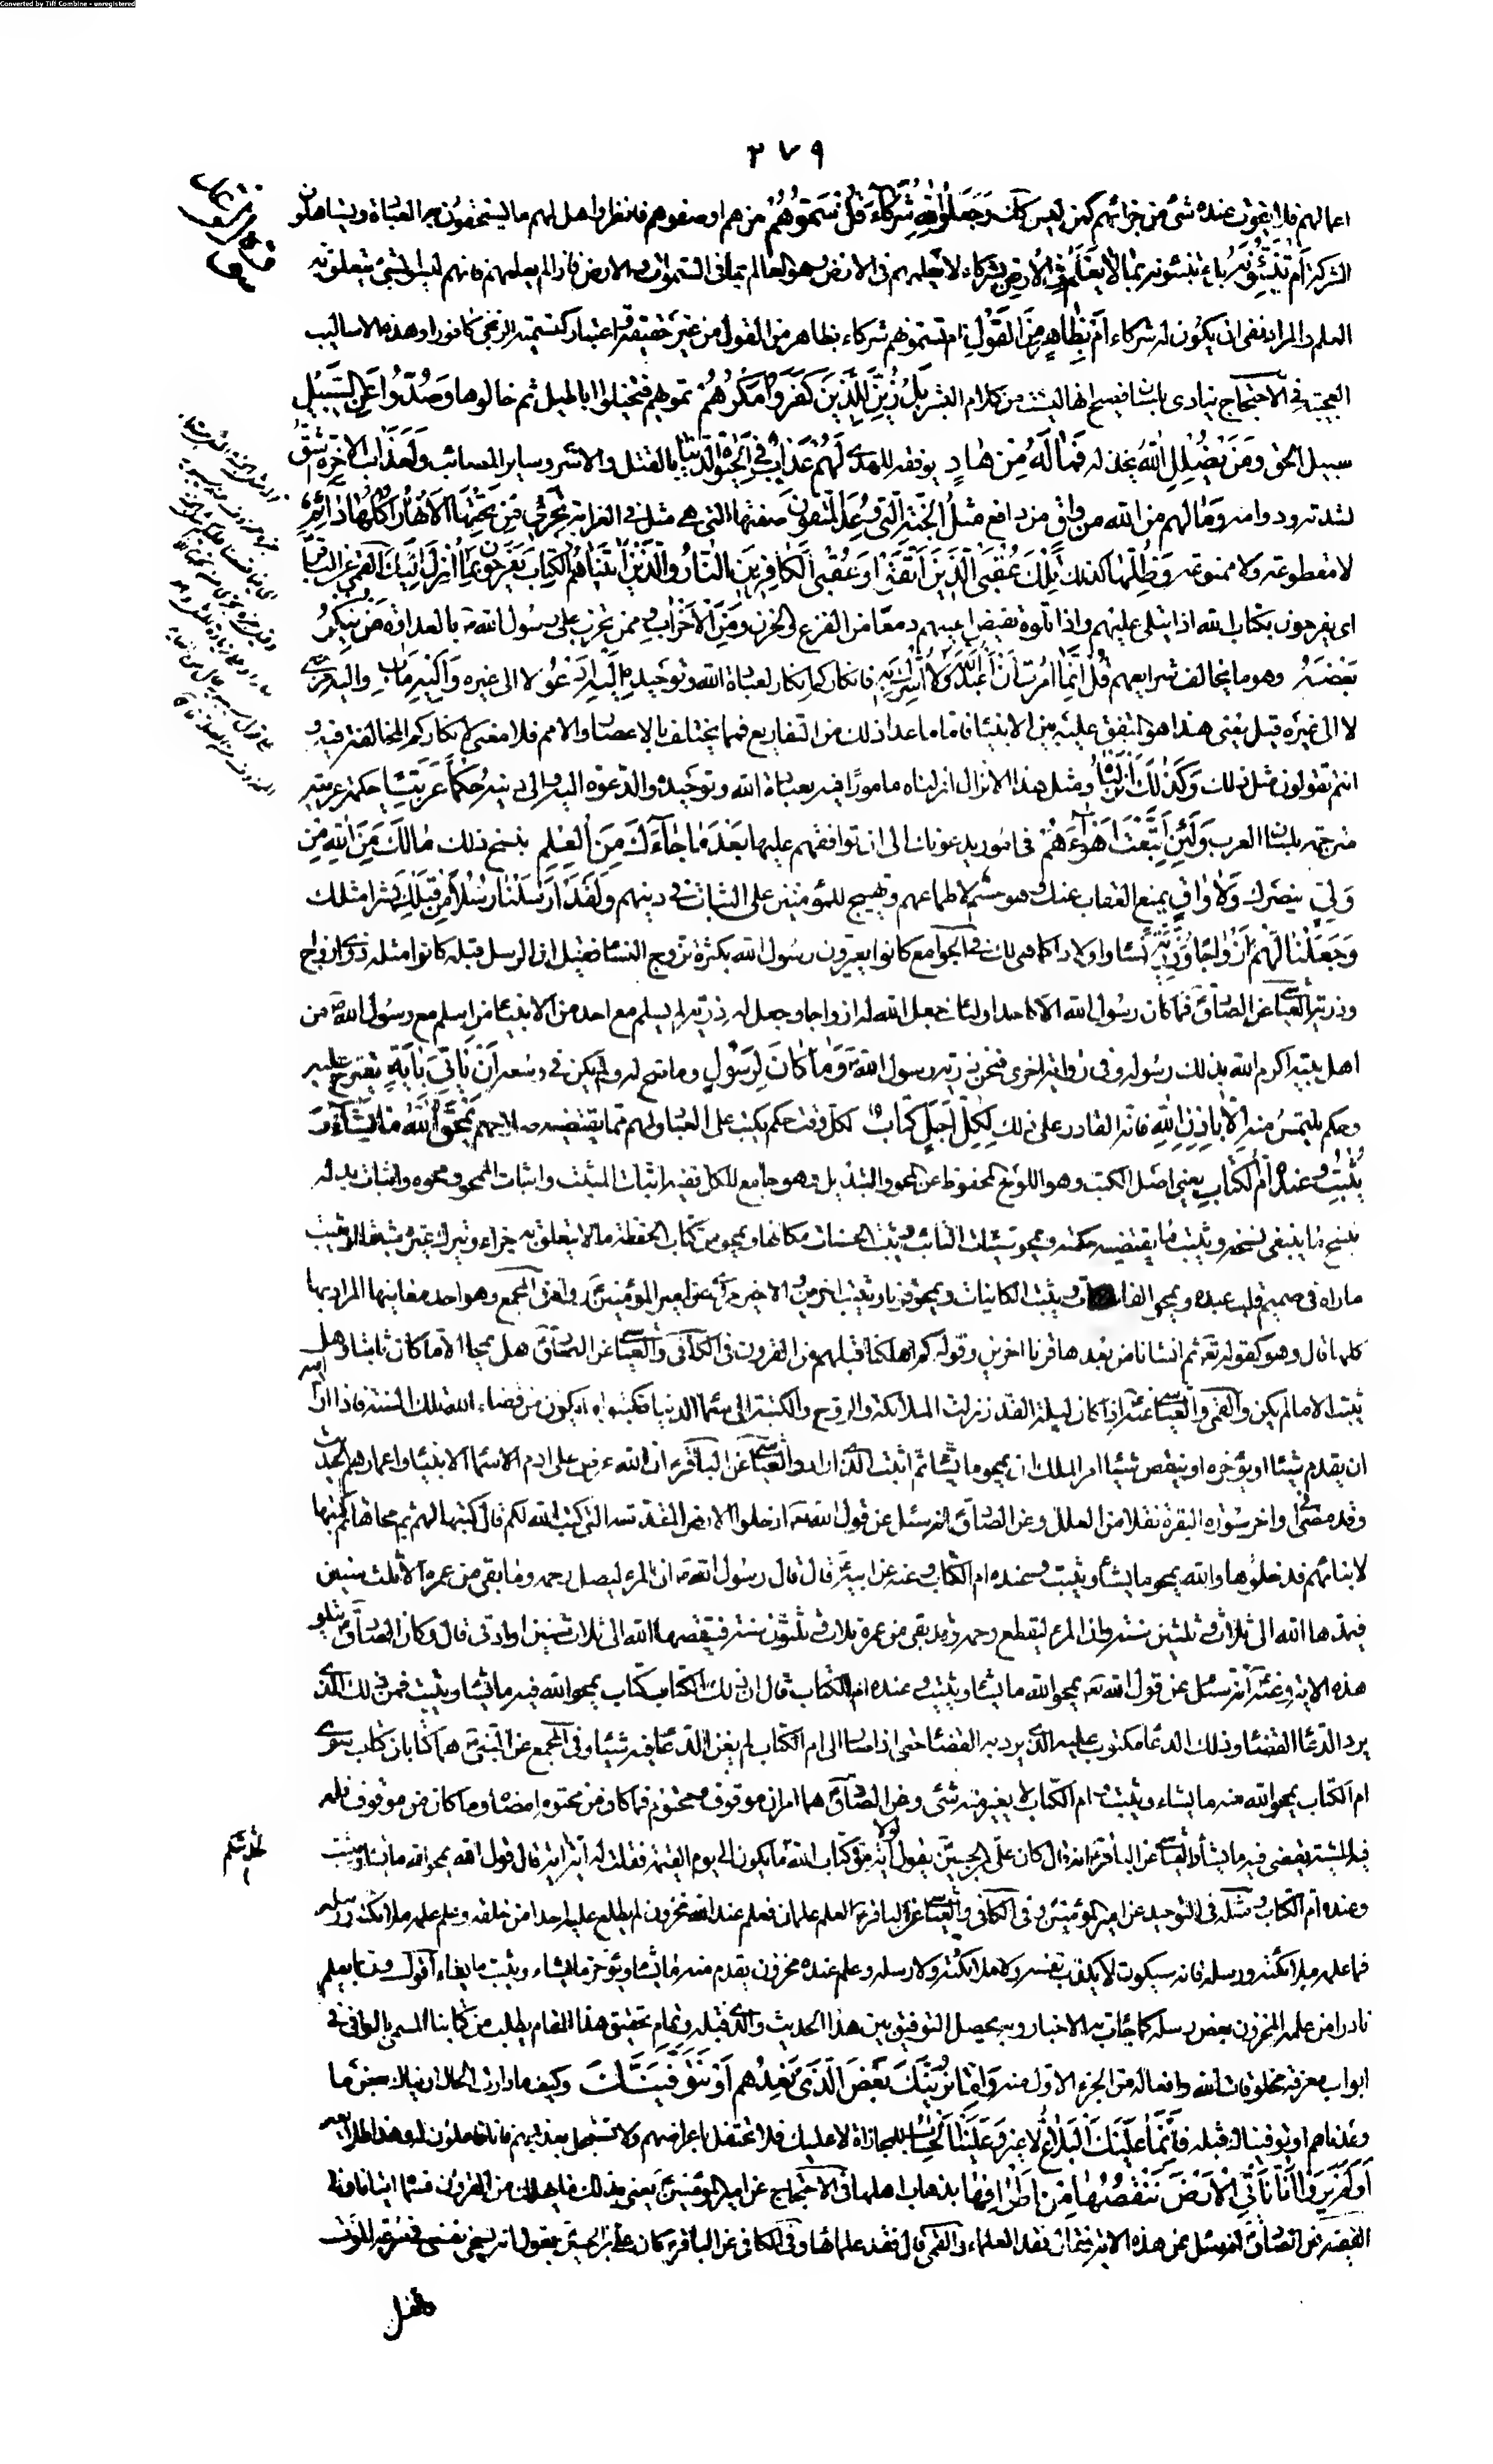 Converted by Tiff Combine - unregistered
٢٧٩
اعمالهم فلا يفوت عنده شئ من جزائهم كمن ليس كك وَجَعَلُوا للهِ شُرَكَاءَ قُلْ سَمُّوهُمْ من هم او صفوهم فانظروا هل لهم ما يستحقون به العبادة ويستاهلون
الشركة اَمْ تُنَبِّئُونَهُ بل اتنبئونه بِمَا لَا يَعْلَمُ فِي الْاَرْضِ بشركاء لا يعلمهم في الارض وهو العالم بما في السموات والارض فاذا لم يعلمهم فانهم ليسوا بشئ يتعلق به
العلم والمراد نفى ان يكون له شركاء اَمْ بِظَاهِرٍ مِنَ الْقَوْلِ ام تسمونهم شركاء بظاهر من القول من غير حقيقة واعتبار كتسمية الزنجى كافورا وهذه الاساليب
العجيبة في الاحتجاج ينادى بلسان فصيح انها ليست من كلام البشر بَلْ زُيِّنَ لِلَّذِينَ كَفَرُوا مَكْرُهُمْ تمويههم فتخيلوا اباطيل ثم خالوها وَصُدُّوا عَنِ السَّبِيلِ
سبيل الحق وَمَنْ يُضْلِلِ اللهُ يخذله فَمَا لَهُ مِنْ هَادٍ يوفقه للهدى لَهُمْ عَذَابٌ فِي الْحَيوةِ الدُّنْيَا بالقتل والاسر وساير المصائب وَلَعَذَابُ الْاخِرَةِ اَشَقُّ
لشدته ودوامه وَمَا لهم من الله من واقٍ من دافع مَثَلُ الْجَنَّةِ الَّتِي وُعِدَ الْمُتَّقُونَ صفتها التي هي مثل في الغرابة تَجْرِي مِنْ تَحْتِهَا الْاَنْهَارُ اُكُلُهَا دَائِمٌ
لا مقطوعة ولا ممنوعة وَظِلُّهَا كذلك تِلْكَ عُقْبَى الَّذِينَ اتَّقَوْا وَعُقْبَى الْكَافِرِينَ النَّارُ وَالَّذِينَ اتَيْنَاهُمُ الْكِتَابَ يَفْرَحُونَ بِمَا اُنْزِلَ اِلَيْكَ القمى عن الباقر
اى يفرحون بكتاب الله اذا يتلى عليهم واذا تلوه تفيض اعينهم دمعا من الفزع والحزن وَمِنَ الْاَحْزَابِ وممن تحزب على رسول الله ص بالعداوة مَنْ يُنْكِرُ
بَعْضَهُ وهو ما يخالف شرايعهم قُلْ اِنَّمَا اُمِرْتُ اَنْ اَعْبُدَ اللهَ وَلَا اُشْرِكَ بِهِ فانكاركم انكار لعبادة الله وتوحيده اِلَيْهِ اَدْعُو لا الى غيره وَاِلَيْهِ مَآبِ واليه مرجعى
لا الى غيره قيل يعنى هذا هو المتفق عليه بين الانبياء فاما ما عدا ذلك من التفاريع فمما يختلف بالاعصار والامم فلا معنى لانكاركم المخالفة فيه و
انتم تقولون مثل ذلك وَكَذلِكَ اَنْزَلْنَاهُ ومثل هذا الانزال انزلناه مامورا فيه بعبادة الله وتوحيده والدعوة اليه والى دينه حُكْمًا عَرَبِيًّا حكمة عربية
مترجمة بلسان العرب وَلَئِنِ اتَّبَعْتَ اَهْوَاءَهُمْ في امور يدعونك الى ان توافقهم عليها بَعْدَ مَا جَاءَكَ مِنَ الْعِلْمِ بنسخ ذلك مَا لَكَ مِنَ اللهِ مِنْ
وَلِيٍّ ينصرك وَلَا وَاقٍ يمنع العقاب عنك وهو حسم لاطماعهم وتهييج للمؤمنين على الثبات في دينهم وَلَقَدْ اَرْسَلْنَا رُسُلًا مِنْ قَبْلِكَ بشرا مثلك
وَجَعَلْنَا لَهُمْ اَزْوَاجًا وَذُرِّيَّةً نساء واولادا كما هي لك في الجوامع كانوا يعيرون رسول الله بكثرة تزوج النساء فقيل ان الرسل قبله كانوا مثله ذوى ازواج
وذرية والعياشى عن الصادق فما كان رسول الله الا كاحد اولئك جعل الله له ازواجا وجعل له ذرية لم يسلم مع احد من الانبياء من اسلم مع رسول الله ص من
اهل بيته اكرم الله بذلك رسوله وفي رواية اخرى فنحن ذرية رسول الله ص وَمَا كَانَ لِرَسُولٍ وما صح له ولم يكن في وسعه اَنْ يَاْتِيَ بِايَةٍ يقترح عليه
وحكم يلتمس منه اِلَّا بِاِذْنِ اللهِ فانه القادر على ذلك لِكُلِّ اَجَلٍ كِتَابٌ لكل وقت حكم يكتب على العباد ولهم مما يقتضيه صلاحهم يَمْحُو اللهُ مَا يَشَاءُ وَ
يُثْبِتُ وَعِنْدَهُ اُمُّ الْكِتَابِ يعنى اصل الكتب وهو اللوح المحفوظ عن المحو والتبديل وهو جامع للكل ففيه اثبات المثبت واثبات الممحو ومحوه واثبات بدله
ينسخ ما ينبغى نسخه ويثبت ما يقتضيه حكمته ويمحو سيئات التائب ويثبت الحسنات مكانها ويمحو من كتاب الحفظة ما لا يتعلق به جزاء ويترك غيره مثبتا او يثبت
ماراه في صميم قلب عبده ويمحو الفاسدات ويثبت الكائنات ويمحو قرنا ويثبت اخرين والاخير مروى عن امير المؤمنين وفى المجمع وهو احد معانيها المراد بها
كلها قال وهو كقوله تع ثم انشانا من بعدها قرنا اخرين وقوله كم اهلكنا قبلهم من القرون في الكافى والعياشى عن الصادق هل يمحا الا ما كان ثابتا وهل
يثبت الا ما لم يكن والقمى والعياشى عنه اذا كان ليلة القدر نزلت الملائكة والروح والكتبة الى سماء الدنيا فيكتبون ما يكون من قضاء الله تلك السنة فاذا اراد
ان يقدم شيئا او يؤخره او ينقص شيئا امر الملك ان يمحو ما يشاء ثم اثبت الذى اراد والعياشى عن الباقر ان الله عرض على ادم الاسماء الانبياء واعمارهم الحديث
وقد مضى في اخر سورة البقرة نقلا من العلل وعن الصادق انه سئل عن قول الله تع ادخلوا الارض المقدسة التى كتب الله لكم قال كتبها لهم ثم محاها ثم كتبها
لابنائهم فدخلوها والله يمحو ما يشاء ويثبت وعنده ام الكتاب وعنه عن ابيه قال قال رسول الله ص ان المرء ليصل رحمه وما بقى من عمره الا ثلث سنين
فيمدها الله الى ثلاث و ثلثين سنة وان المرء ليقطع رحمه وقد بقى من عمره ثلاث و ثلثون سنة فيقصرها الله الى ثلاث سنين او ادنى قال وكان الصادق يتلو
هذه الاية وعنه انه سئل عن قول الله تع يمحو الله ما يشاء ويثبت وعنده ام الكتاب قال ان ذلك الكتاب كتاب يمحو الله فيه ما يشاء ويثبت فمن ذلك الذى
يرد الدعاء القضاء وذلك الدعاء مكتوب عليه الذى يرد به القضاء حتى اذا صار الى ام الكتاب لم يغن الدعاء فيه شيئا وفى المجمع عن النبى هما كتابان كتاب سوى
ام الكتاب يمحو الله منه ما يشاء ويثبت وام الكتاب لا يغير منه شئ وعن الصادق هما امران موقوف ومحتوم فما كان من محتوم امضاه وما كان من موقوف فله
فيه المشية يقضى فيه ما يشاء والعياشى عن الباقر انه قال كان على بن الحسين يقول لولا اية في كتاب الله لحدثتكم ما يكون الى يوم القيمة فقلت له اية اية قال قول الله يمحو الله ما يشاء ويثبت
وعنده ام الكتاب ومثله في التوحيد عن امير المؤمنين وفى الكافى والعياشى عن الباقر العلم علمان فعلم عند الله مخزون لم يطلع عليه احدا من خلقه وعلم علمه ملائكته ورسله
فما علمه ملائكته ورسله فانه سيكون لا يكذب نفسه ولا ملائكته ولا رسله وعلم عنده مخزون يقدم منه ما يشاء ويؤخر ما يشاء ويثبت ما يشاء اقول وربما يعلم
نادرا من علمه المخزون بعض رسله كما جائت به الاخبار وبه يحصل التوفيق بين هذا الحديث والذى قبله وتمام تحقيق هذا المقام يطلب من كتابنا المسمى بالوافى في
ابواب معرفة مخلوقات الله وافعاله من الجزء الاول منه وَاِمَّا نُرِيَنَّكَ بَعْضَ الَّذِي نَعِدُهُمْ اَوْ نَتَوَفَّيَنَّكَ وكيف ما دارت الحال اريناك بعض ما
وعدناهم او توفيناك قبله فَاِنَّمَا عَلَيْكَ الْبَلَاغُ لا غير وَعَلَيْنَا الْحِسَابُ للمجازاة لا عليك فلا تحتفل باعراضهم ولا تستعجل بعذابهم فانا فاعلون له وهذا طلايعه
اَوَلَمْ يَرَوْا اَنَّا نَاْتِي الْاَرْضَ نَنْقُصُهَا مِنْ اَطْرَافِهَا بذهاب اهلها في الاحتجاج عن امير المؤمنين يعنى بذلك ما يهلك من القرون فسماه اتيانا وفى
الفقيه عن الصادق انه سئل عن هذه الاية فقال فقد العلماء والقمى قال فقد علمائها وفى الكافى عن الباقر كان على بن الحسين يقول انه يسخى نفسى في سرعة الموت